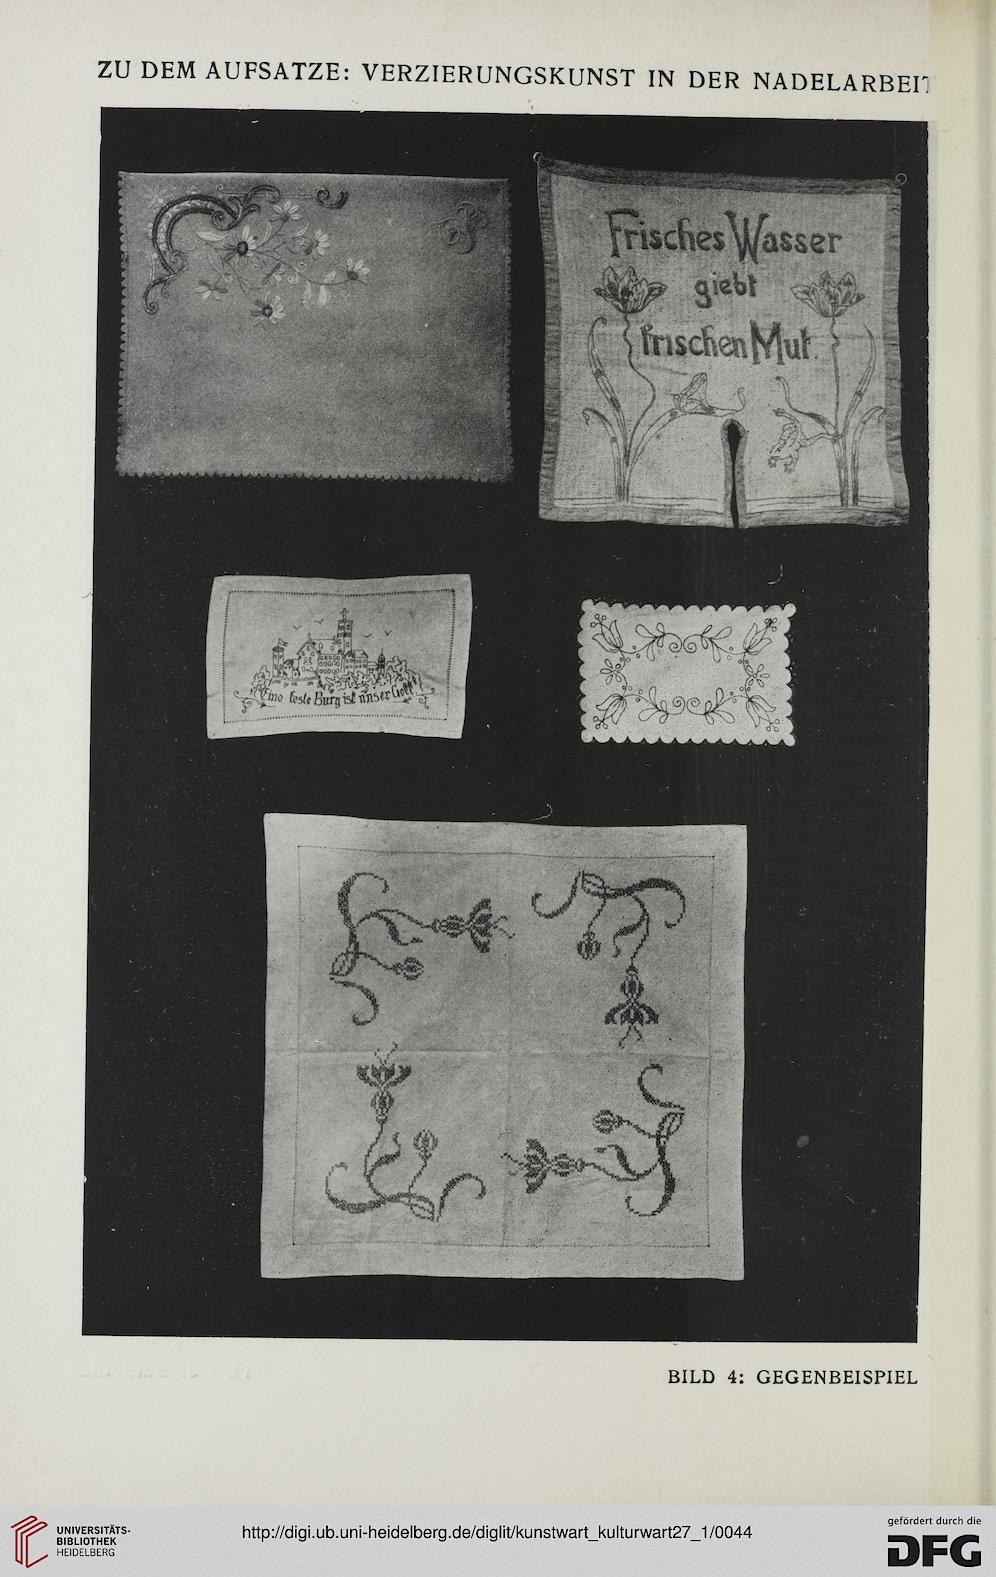 ZU DEM AUFSATZE: VERZIERUNGSKUNST IN DER NADELARBEIT
Frisches Wasser
giebt
frischen Mut.
Eine feste Burg ist unser Gott
BILD 4: GEGENBEISPIEL
UNIVERSITÄTS-
BIBLIOTHEK
HEIDELBERG
http://digi.ub.uni-heidelberg.de/diglit/kunstwart_kulturwart27_1/0044
gefördert durch die
DFG